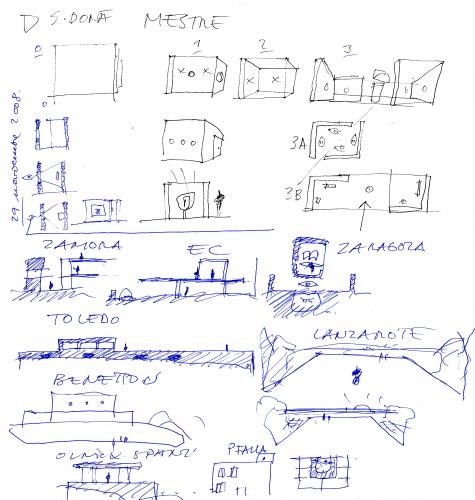 D S. DONÀ MESTRE
0 1 2 3
29 novembre 2008.
3A
3B
ZAMORA EC ZARAGOZA
TOLEDO LANZAROTE
BENETTON
OLNICK SPANU PTALLA